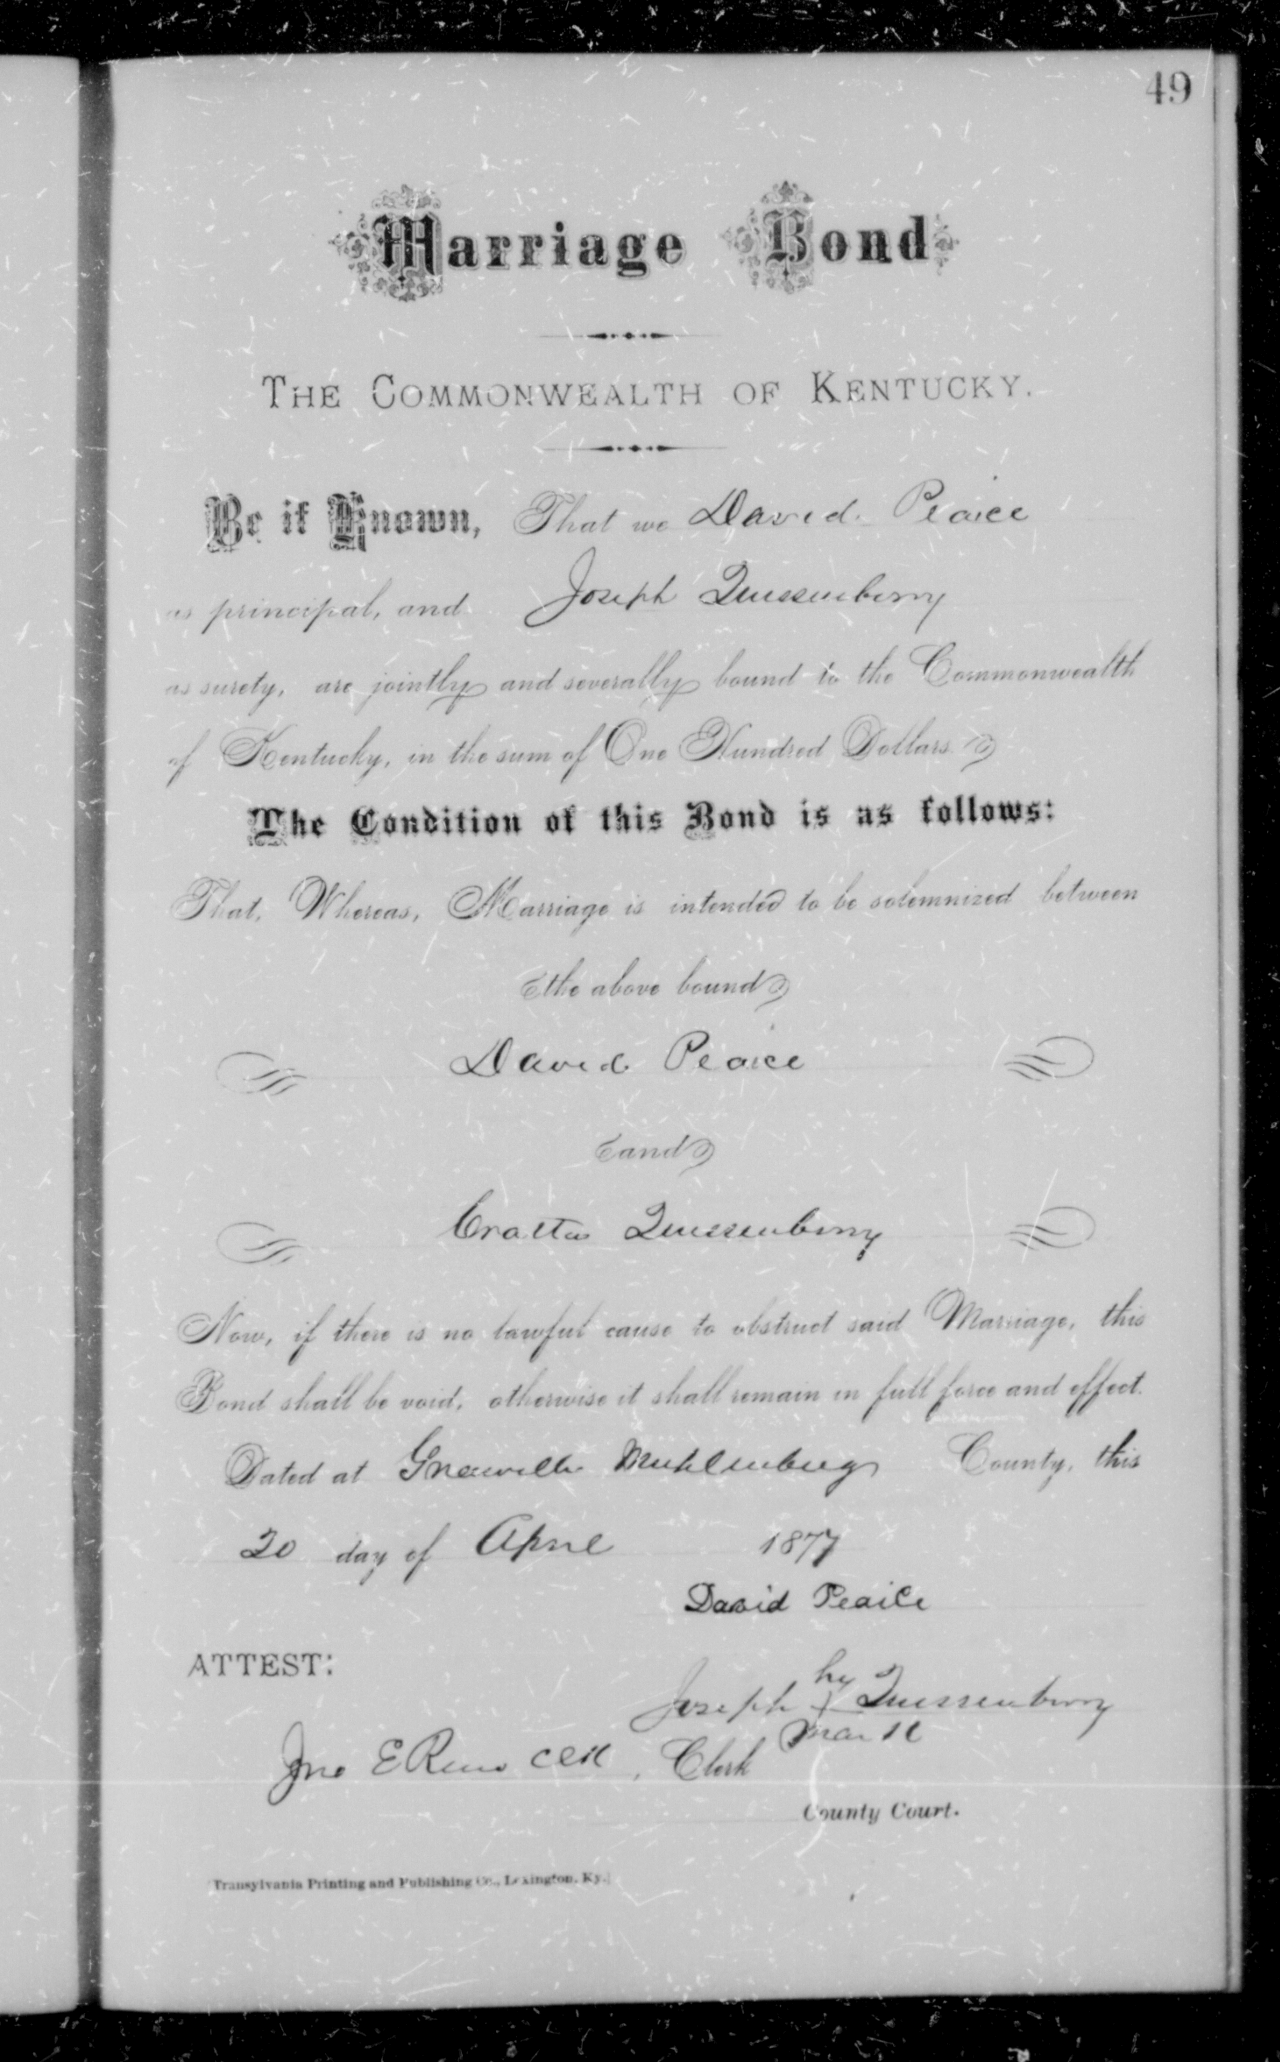 49
Marriage Bond
THE COMMONWEALTH OF KENTUCKY.
Be it Known, That we David Pearce
as principal, and Joseph Quessenberry
as surety, are jointly and severally bound to the Commonwealth
of Kentucky, in the sum of One Hundred Dollars.
The Condition of this Bond is as follows:
That, Whereas, Marriage is intended to be solemnized between
the above bound
David Pearce
and
Quessenberry
Now, if there is no lawful cause to obstruct said Marriage, this
Bond shall be void, otherwise it shall remain in full force and effect.
Dated at Greenville Muhlenberg County, this
20 day of April 1877
David Pearce
ATTEST:
his
Joseph X Quessenberry
mark
Jno E Reno Clk, Clerk
County Court.
Transylvania Printing and Publishing Co., Lexington, Ky.